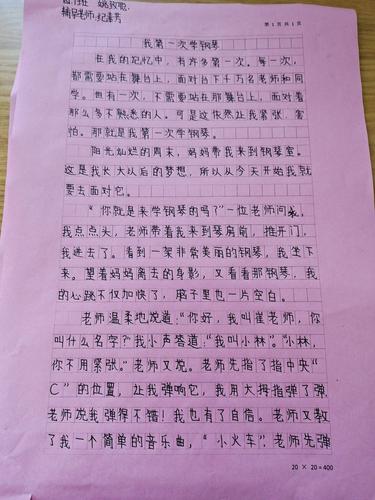 四.1班 姚致聪
辅导老师:纪素芳
第 1 页 共 1 页
我第一次学钢琴
在我的记忆中,有许多第一次。每一次,
都需要站在舞台上,面对台下千万名老师和同
学。也有一次,不需要站在那舞台上,面对着
那么多不熟悉的人。可是这依然让我紧张,害
怕。那就是我第一次学钢琴。
阳光灿烂的周末,妈妈带我来到钢琴室。
这是我长大以后的梦想,所以从今天开始我就
要去面对它。
“你就是来学钢琴的吗?”一位老师问我,
我点点头,老师带着我来到琴房前,推开门,
我进去了。看到一架非常美丽的钢琴,我坐下
来。望着妈妈离去的身影,又看看那钢琴,我
的心跳不仅加快了,脑子里也一片空白。
老师温柔地说道:“你好,我叫崔老师,你
叫什么名字?”我小声答道:“我叫小林”。“小林,
你不用紧张。”老师又说。老师先指了指中央“
C”的位置,让我弹响它,我用大拇指弹了弹,
老师说我弹得不错!我也有了自信。老师又教
了我一个简单的音乐曲,“小火车”,老师先弹
20 × 20 = 400